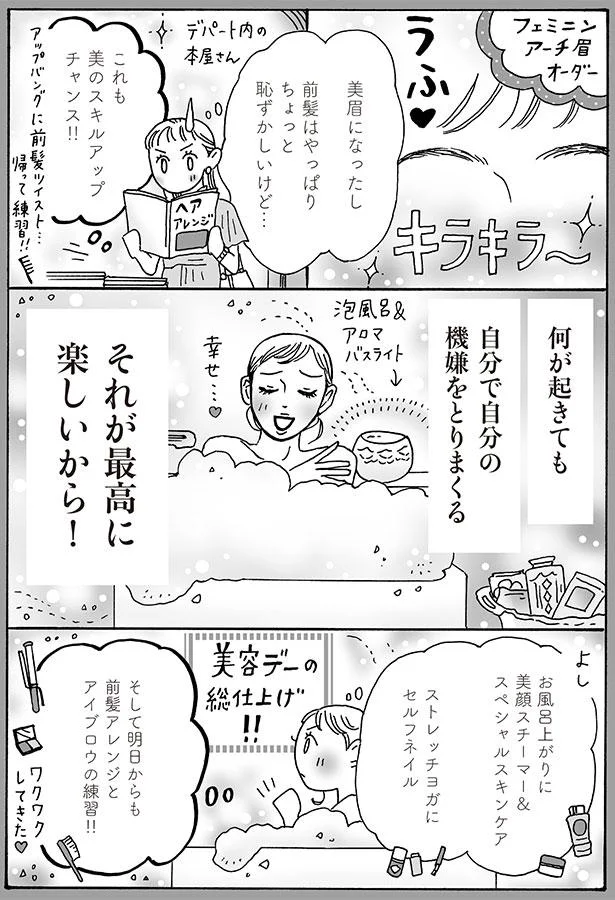 フェミニン
アーチ眉
オーダー
うふ♥
キラキラ〜
美眉になったし
前髪はやっぱり
ちょっと
恥ずかしいけど…
デパート内の
本屋さん
ヘア
アレンジ
これも
美のスキルアップ
チャンス!!
アップバングに前髪ツイスト…
帰って練習!!
何が起きても
自分で自分の
機嫌をとりまくる
泡風呂&
アロマ
バスライト
幸せ…♥
それが最高に
楽しいから!
よし
お風呂上がりに
美顔スチーマー&
スペシャルスキンケア
ストレッチヨガに
セルフネイル
美容デーの
総仕上げ
!!
そして明日からも
前髪アレンジと
アイブロウの練習!!
ワクワク
してきた♥